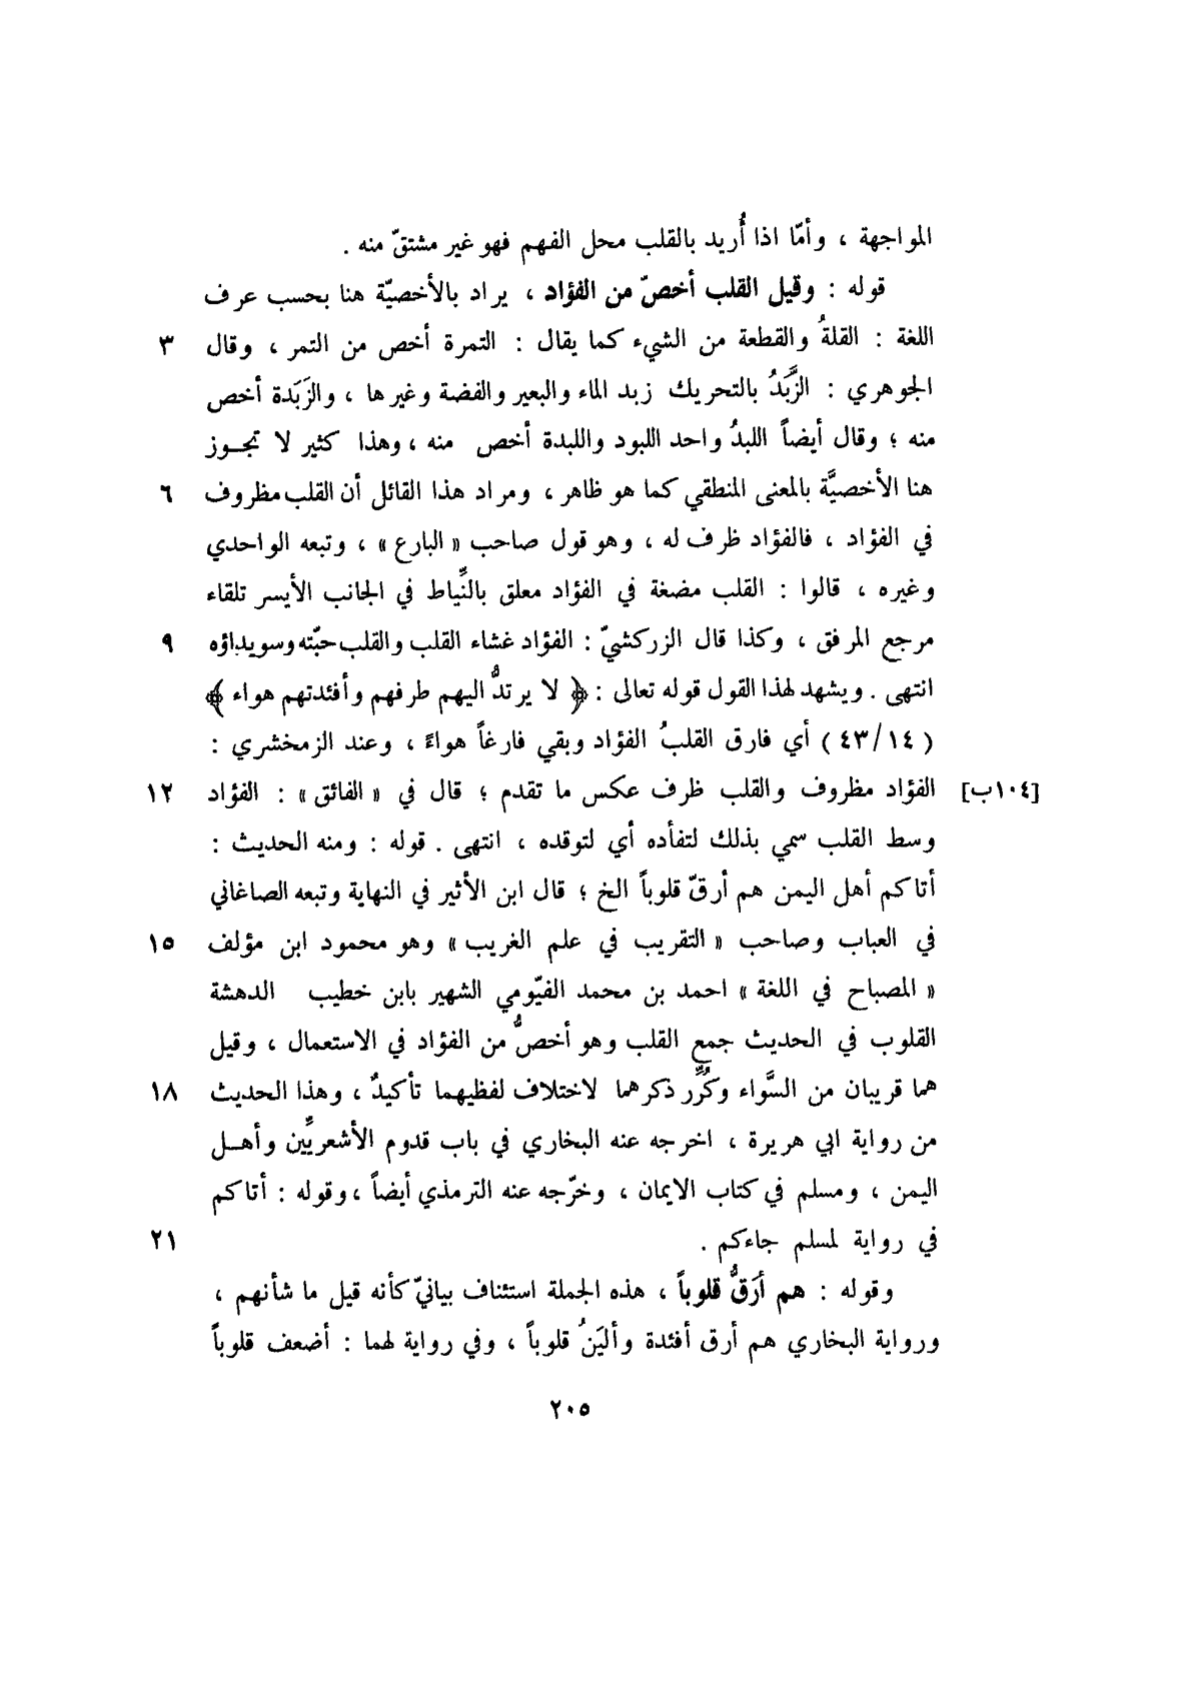 المواجهة ، وأمّا اذا أُريد بالقلب محل الفهم فهو غير مشتقّ منه .
قوله : وقيل القلب أخصّ من الفؤاد ، يراد بالأخصيّة هنا بحسب عرف
اللغة : القلةُ والقطعة من الشيء كما يقال : التمرة أخص من التمر ، وقال ٣
الجوهري : الزَّبَدُ بالتحريك زبد الماء والبعير والفضة وغيرها ، والزَبَدة أخص
منه ؛ وقال أيضاً اللبدُ واحد اللبود واللبدة أخص منه ، وهذا كثير لا تجــوز
هنا الأخصيَّة بالمعنى المنطقي كما هو ظاهر ، ومراد هذا القائل أن القلب مظروف ٦
في الفؤاد ، فالفؤاد ظرف له ، وهو قول صاحب « البارع » ، وتبعه الواحدي
وغيره ، قالوا : القلب مضغة في الفؤاد معلق بالنِّياط في الجانب الأيسر تلقاء
مرجع المرفق ، وكذا قال الزركشيّ : الفؤاد غشاء القلب والقلب حبّته وسويداؤه ٩
انتهى . ويشهد لهذا القول قوله تعالى : ﴿ لا يرتدُّ اليهم طرفهم وأفئدتهم هواء ﴾
( ٤٣/١٤ ) أي فارق القلبُ الفؤاد وبقي فارغاً هواءً ، وعند الزمخشري :
[١٠٤ب] الفؤاد مظروف والقلب ظرف عكس ما تقدم ؛ قال في « الفائق » : الفؤاد ١٢
وسط القلب سمي بذلك لتفأده أي لتوقده ، انتهى . قوله : ومنه الحديث :
أتاكم أهل اليمن هم أرقّ قلوباً الخ ؛ قال ابن الأثير في النهاية وتبعه الصاغاني
في العباب وصاحب « التقريب في علم الغريب » وهو محمود ابن مؤلف ١٥
« المصباح في اللغة » احمد بن محمد الفيّومي الشهير بابن خطيب الدهشة
القلوب في الحديث جمع القلب وهو أخصُّ من الفؤاد في الاستعمال ، وقيل
هما قريبان من السَّواء وكُرِّر ذكرهما لاختلاف لفظيهما تأكيدٌ ، وهذا الحديث ١٨
من رواية ابي هريرة ، اخرجه عنه البخاري في باب قدوم الأشعريِّين وأهــل
اليمن ، ومسلم في كتاب الايمان ، وخرّجه عنه الترمذي أيضاً ، وقوله : أتاكم
في رواية لمسلم جاءكم . ٢١
وقوله : هم أرَقُّ قلوباً ، هذه الجملة استئناف بيانيّ كأنه قيل ما شأنهم ،
ورواية البخاري هم أرق أفئدة وأليَنُ قلوباً ، وفي رواية لهما : أضعف قلوباً
٢٠٥